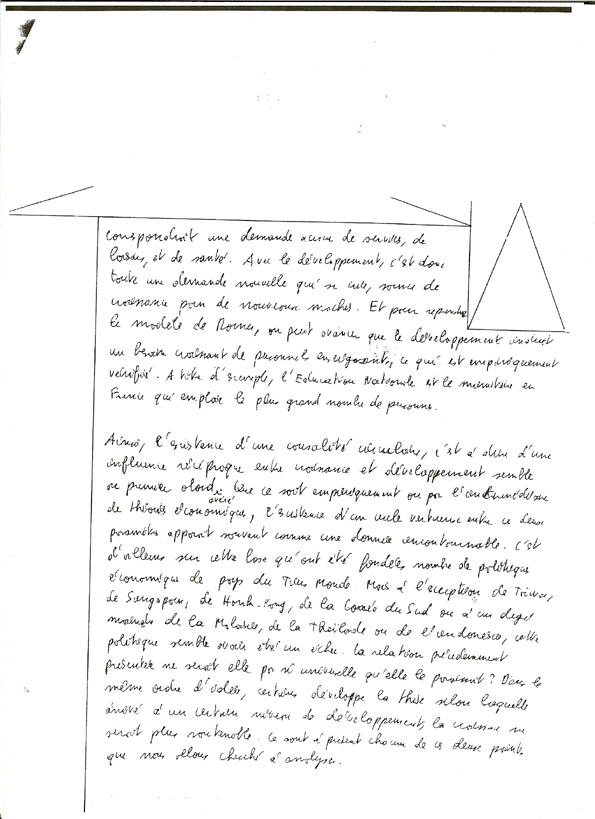 correspondrait une demande accrue de services, de
loisirs, et de santé. Avec le développement, c'est donc
toute une demande nouvelle qui se crée, source de
croissance pour de nouveaux marchés. Et pour reprendre
le modèle de Romer, on peut avancer que le développement induit
un besoin croissant de personnels enseignants, ce qui est empiriquement
vérifié. A titre d'exemple, l'Education Nationale est le ministère en
France qui emploie le plus grand nombre de personnes.
Ainsi, l'existence d'une causalité circulaire, c'est à dire d'une
influence réciproque entre croissance et développement semble
au premier abord avéré. Que ce soit empiriquement ou par l'intermédiaire
de théories économiques, l'existence d'un cercle vertueux entre ces deux
paramètres apparaît souvent comme une donnée incontournable. C'est
d'ailleurs sur cette base qu'ont été fondées nombre de politiques
économiques de pays du Tiers Monde. Mais à l'exception de Taiwan,
de Singapour, de Honk-Kong, de la Corée du Sud ou à un degré
moindre de la Malaisie, de la Thaïlande ou de l'Indonésie, cette
politique semble avoir été un échec. La relation précédemment
présentée ne serait elle pas si universelle qu'elle le paraissait ? Dans le
même ordre d'idées, certains développe la thèse selon laquelle
arrivé à un certain niveau de développement, la croissance ne
serait plus soutenable. Ce sont à présent chacun de ces deux points
que nous allons chercher à analyser.